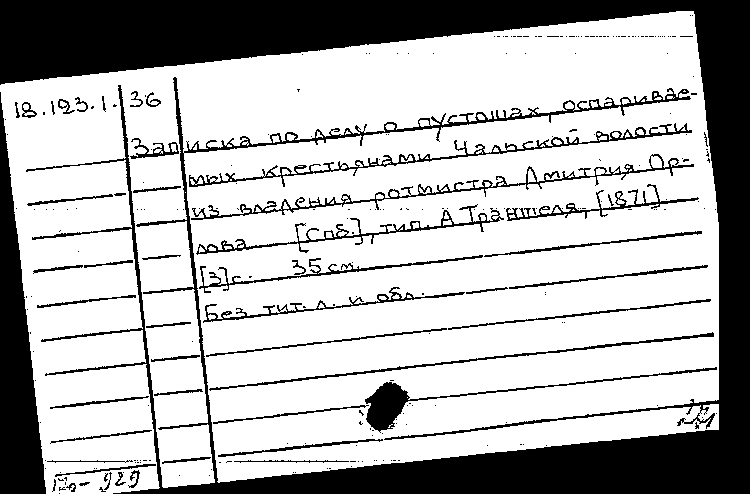 18.123.1. 36
Записка по делу о пустошах, оспаривае-
мых крестьянами Чальской волости
из владения ротмистра Дмитрия Ор-
лова [Спб.], тип. А Траншеля, [1871]
[3]с. 35 см.
Без тит. л. и обл.
929